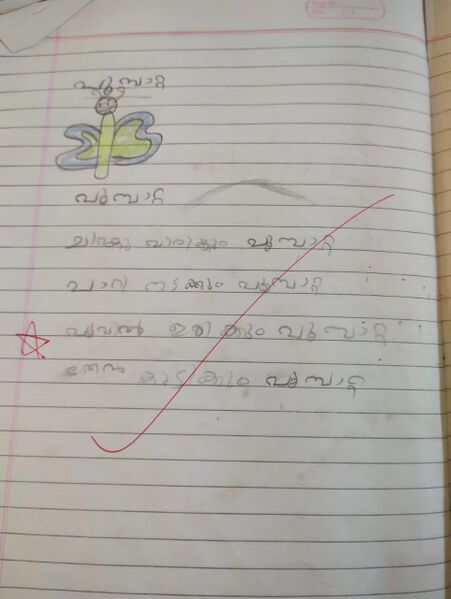 പൂമ്പാറ്റ
പൂമ്പാറ്റ
ചിറകു വിരിക്കും പൂമ്പാറ്റ
പാറി നടക്കും പൂമ്പാറ്റ
പൂവിൽ ഇരിക്കും പൂമ്പാറ്റ
തേൻ കുടിക്കും പൂമ്പാറ്റ